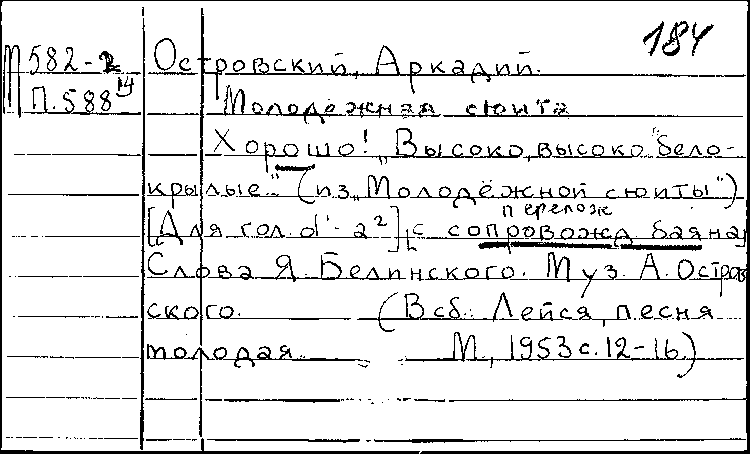 184
М 582-2 Островский, Аркадий.
П. 588 14 Молодёжная сюита
Хорошо! „Высоко, высоко "бело-
крылые." (из „Молодёжной сюиты")
перелож
[Для гол. d¹-a²] [с сопровожд баяна]
Слова Я. Белинского. Муз. А. Остров
ского. (В сб.: Лейся, песня
молодая М., 1953 с. 12-16.)